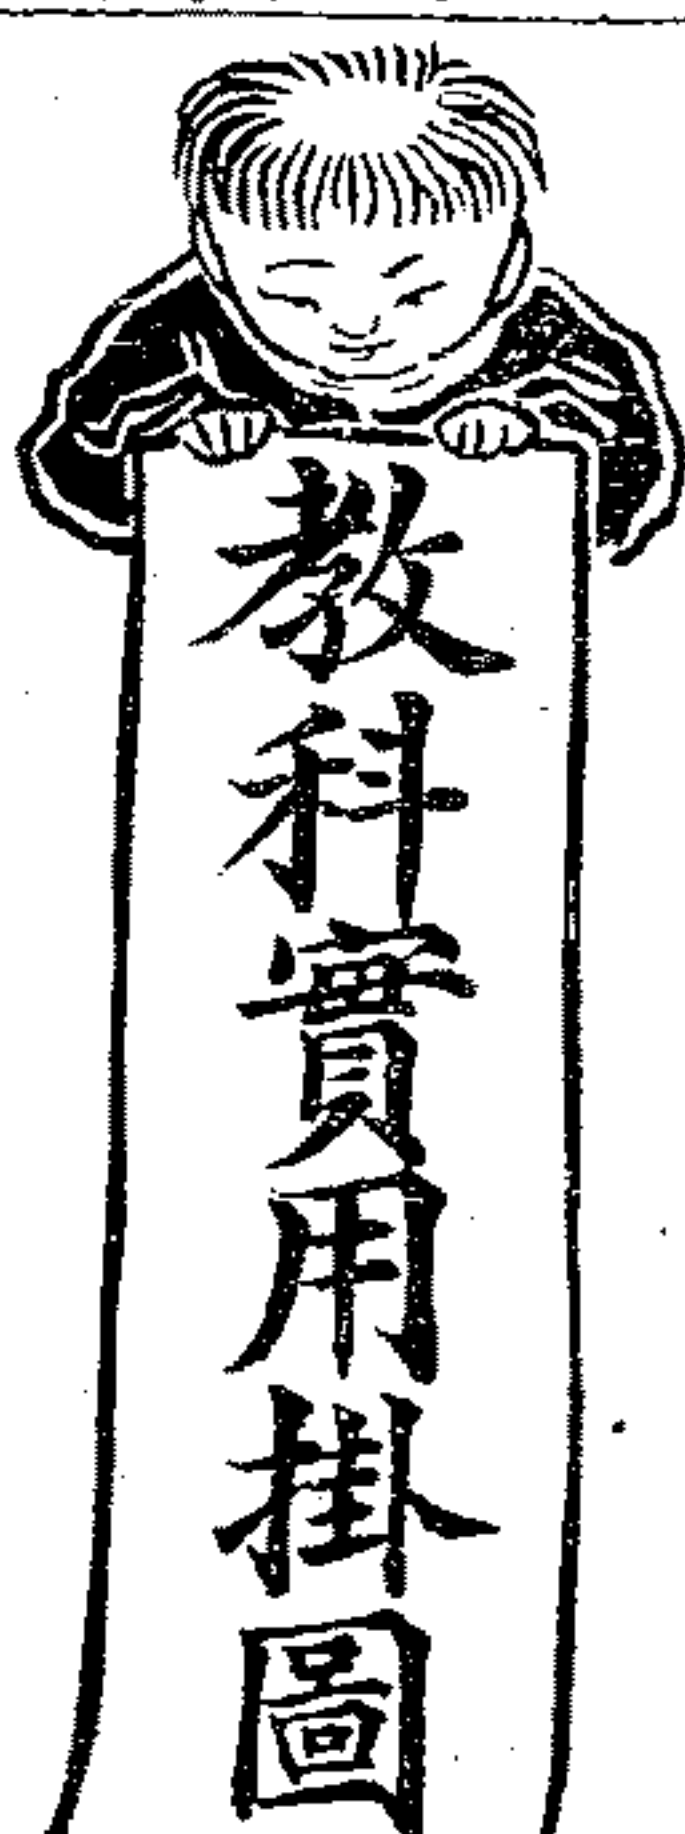 教科實用掛圖